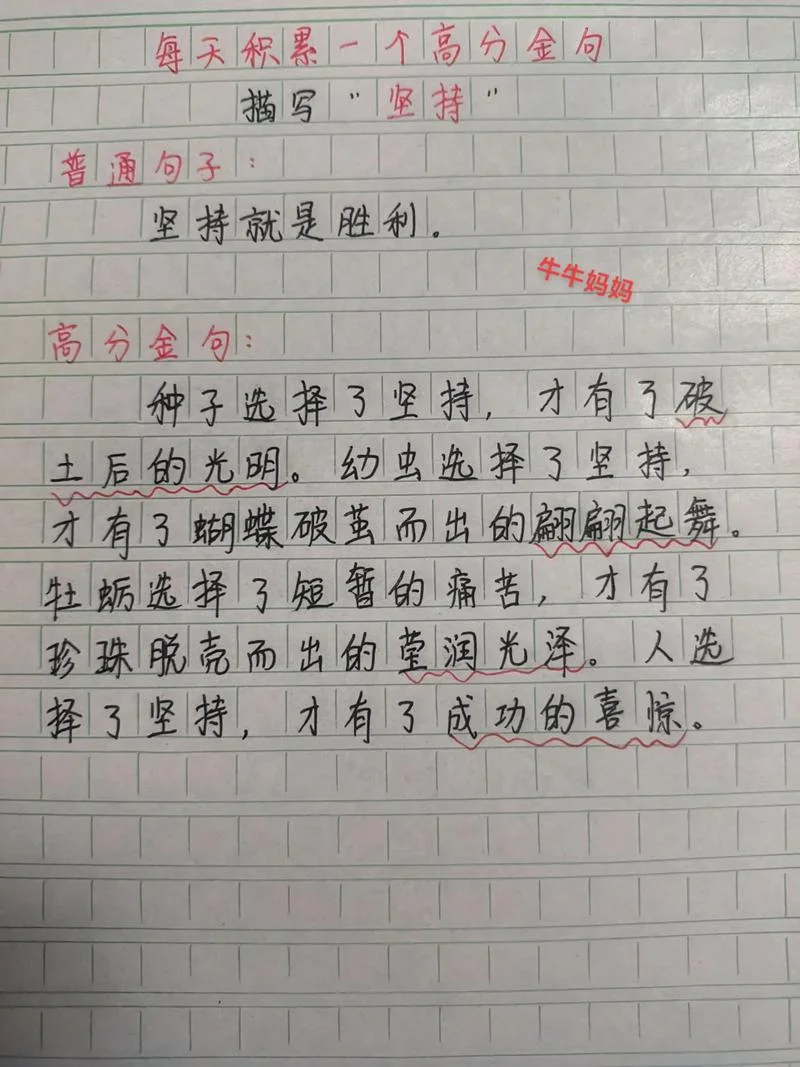 每天积累一个高分金句
描写“坚持”
普通句子:
坚持就是胜利。
牛牛妈妈
高分金句:
种子选择了坚持,才有了破
土后的光明。幼虫选择了坚持,
才有了蝴蝶破茧而出的翩翩起舞。
牡蛎选择了短暂的痛苦,才有了
珍珠脱壳而出的莹润光泽。人选
择了坚持,才有了成功的喜惊。